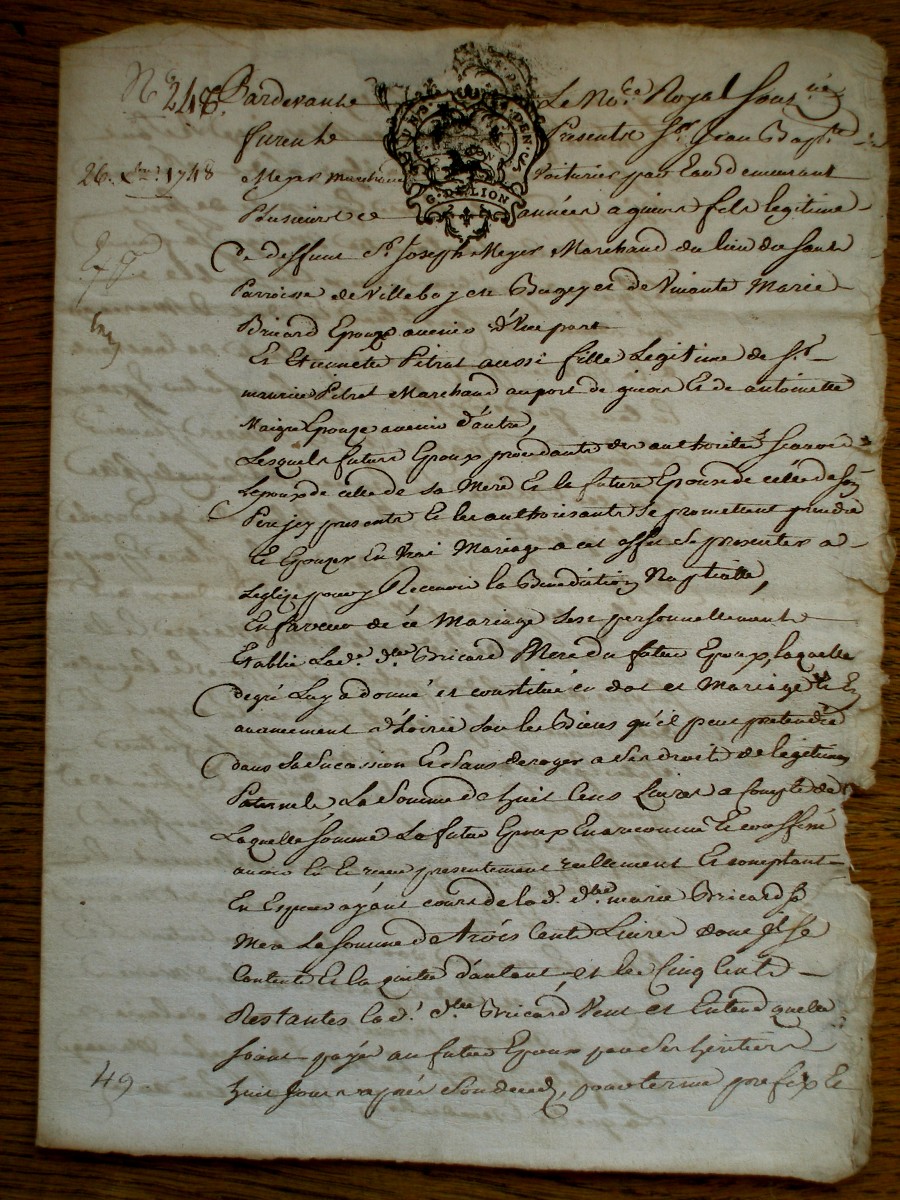 N° 248. Pardevant Le No.re Royal Sous.né
furent Presents Sr. Jean Bapt.te
26. 1748 Meyer marchand voiturier par Eau demeurant
Plusieurs années a fils legitime
De deffunt Sr. Joseph Meyer Marchand du lieu du Sault
Parroisse de Villeboy en Bugey et de Vivante Marie
Bricard Epoux avenir d'Une part
Et Etiennete Pitrat aussi fille Legitime de Sr.
maurice Pitrat Marchand au port de Et de antoinette
Maigre Epouze avenir d'autre,
Lesquels futurs Epoux procedants des authorités scavoir
Lepoux de celle de sa Mere Et la future Epouse de celle de son
Pere icy presents Et les authorisants se promettent prendre
Et Epouzer En Vrai Mariage a cet effet se presenter a
Leglize pour y Recevoir la Benediction Nuptialle,
En faveur de ce Mariage sest personnellement
Establie Lad.e d.lle Bricard Mere du futur Epoux, laquelle
degré Luy a donné et constitué en dot et Mariage Et En
avancement d'hoirie sur les Biens qu'il peut pretendre
dans sa sucession Et sans deroger a ses droits de legitime
Paternels La Somme de huit Cents Livres a Compte de
Laquelle somme Le futur Epoux En a reconnu Et confessé
avoir Eü Et receu presentement reellement Et comptant
En Especes ayant cours de lad.e d.lle marie Bricard sa
Mere La somme de trois Cents Livres dont Il se
Contente Et la quitte d'autant et les Cinq Cents
Restantes lad.e d.lle Bricard Veut et Entend quelle
soient payés au futur Epoux par ses heritiers
huit Jours aprés son deced, pour terme prefix Et
49.
G. DE LION